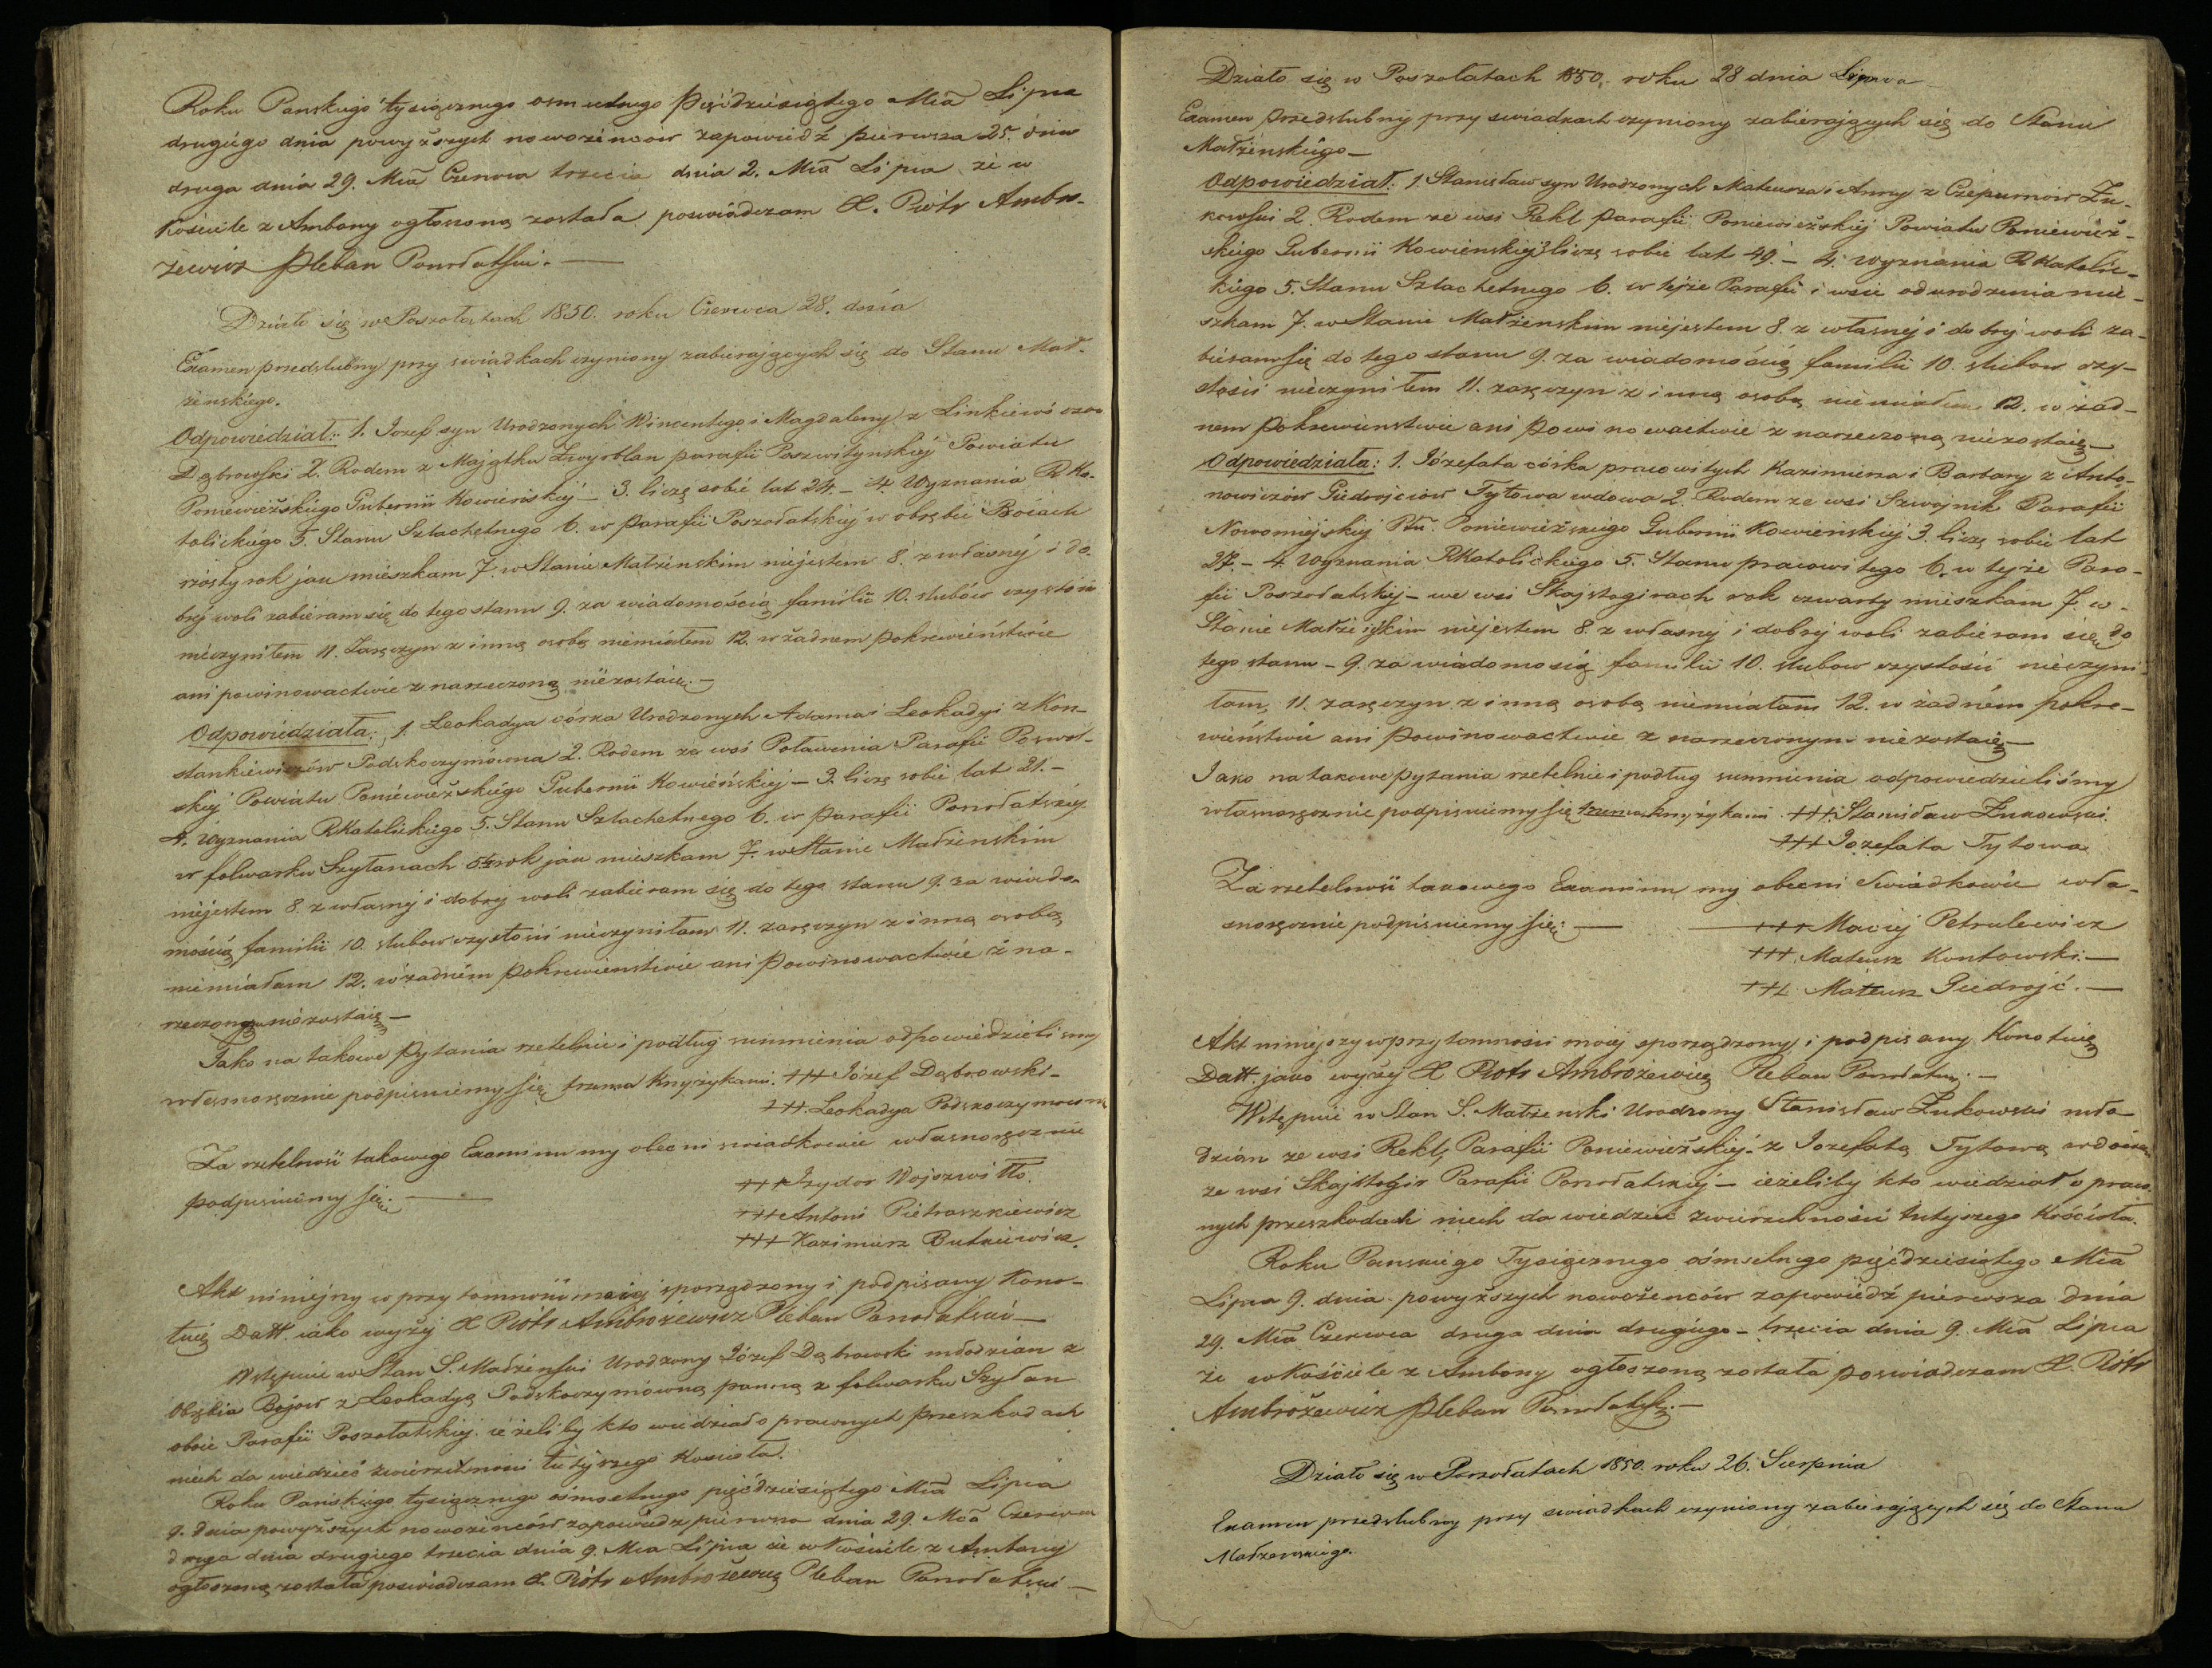 Roku Panskiego tysiącznego osmsetnego Pięćdziesiątego Mca Lipca
drugiego dnia powyższych nowożencow zapowiedź pierwsza 25. dnia
druga dnia 29. Mca Czerwca trzecia dnia 2. Mca Lipca że w
Kościele z Ambony ogłoszoną została poswiadczam X. Piotr Ambro-
żewicz Pleban
Działo się w Poszołatach 1850. roku Czerwca 28. dnia
Examen przedslubny przy swiadkach czyniony zabierających się do Stanu Mał-
żenskiego.
Odpowiedział: 1. Jozef syn Urodzonych Wincentego i Magdaleny z Linkiewiczow
Dąbrowski 2. Rodem z Majątku parafii Poszwityńskiej Powiatu
Poniewieżskiego Gubernii Kowieńskiej – 3. liczę sobie lat 24. – 4. Wyznania R Ka-
tolickiego 5. Stanu Szlachetnego 6. w Parafii Poszołatskiej w obrębie Boiach
rok jak mieszkam 7. w Stanie Małżenskim niejestem 8. z własnéj i do-
bréj woli zabieram się do tego stanu 9. za wiadomością familii 10. slubów czystości
nieczyniłem 11. Zaręczyn z inną osobą niemiałem 12. w żadnem Pokrewieństwie
ani powinowactwie z narzeczoną niezostaię. –
Odpowiedziała: 1. Leokadya córka Urodzonych Adama i Leokadyi z Kon-
stankiewiczów Podskoczymówna 2. Rodem ze wsi Poławenia Parafii Poswol-
skiej Powiatu Poniewieżskiego Gubernii Kowieńskiej – 3. liczę sobie lat 21. –
4. Wyznania RKatolickiego 5. Stanu Szlachetnego 6. w Parafii
w folwarku Szyłanach rok jak mieszkam 7. w Stanie Małżenskim
niejestem 8. z własnej i dobrej woli zabieram się do tego stanu 9. za wiado-
mością familii 10. slubow czystości nieczyniłam 11. zaręczyn z inną osobą
niemiałam 12. w żadném Pokrewienstwie ani Powinowactwie z na-
rzeczonym niezostaię –
Jako na takowe Pytania rzetelnie i podług sumnienia odpowiedzielismy
własnoręcznie podpisuiemy się trzema Krzyżykami. +++ Józef Dąbrowski –
+++ Leokadya Podskoczymowna
Za rzetelność takowego Examinu my obecni swiadkowie własnoręcznie
podpisuiemy się. –
+++ Izydor Wojszwiłło.
+++ Antoni Pietraszkiewicz
+++ Kazimierz Butkiewicz.
Akt niniejszy w przytomności moiej sporządzony i podpisany Kono-
tuię Datt. iako wyżej X Piotr Ambrożewicz Pleban
Wstępuie w Stan S. Małżeński Urodzony Józef Dąbrowski młodzian z
Obrębia Bojow z Leokadyą Podskoczymówną panną z folwarku Szyłan
oboie Parafii Poszołatskiej ieżeliby kto wiedział o prawnych Przeszkodach
niech da wiedzieć zwierzchności tutejszego Kościoła.
Roku Pańskiego tysiącznego ósmsetnego pięćdziesiątego Mca Lipca
9. dnia powyższych nowożencow zapowiedz pierwsza dnia 29. Mca Czerwca
druga dnia drugiego trzecia dnia 9. Mca Lipca że w Kościele z Ambony
ogłoszoną została poswiadczam X. Piotr Ambrożewicz Pleban
Działo się w Poszołatach 1850. roku 28 dnia
Examen Przedslubny przy swiadkach czyniony zabierających się do Stanu
Małżenskiego –
Odpowiedział: 1. Stanisław syn Urodzonych Mateusza i Anny z Czepurnow Żu-
kowski 2. Rodem ze wsi Rekl Parafii Poniewieżskiej Powiatu Poniewież-
skiego Gubernii Kowienskiej 3 liczę sobie lat 49. – 4. Wyznania RKatolic-
kiego 5. Stanu Szlachetnego 6. w tejże Parafii i wsie od urodzenia mie-
szkam 7. w Stanie Małżenskim niejestem 8. z własnej i dobrej woli za-
bieram się do tego stanu 9. za wiadomością familii 10. slubow czy-
stości nieczyniłem 11. zaręczyn z inną osobą niemiałem 12. w żad-
nem Pokrewienstwie ani Powinowactwie z narzeczoną niezostaię –
Odpowiedziała: 1. Józefata córka pracowitych Kazimierza i Barbary z Anto-
nowiczów Giedrojciow Tytowa wdowa 2. Rodem ze wsi Szwojnik Parafii
Nowomiejskiej Ptu. Poniewieżskiego Gubernii Kowieńskiej 3. liczę sobie lat
27. – 4. Wyznania RKatolickiego 5. Stanu pracowitego 6. w tejże Para-
fii Poszołatskiej – we wsi Skajstogirach rok czwarty mieszkam 7. w
Stanie Małżeńskim niejestem 8. z własnej i dobrej woli zabieram się do
tego stanu – 9. za wiadomością familii 10. slubow czystości nieczyni-
łam, 11. zaręczyn z inną osobą niemiałam 12. w żadném pokre-
wieństwie ani Powinowactwie z narzeczonym niezostaię –
Jako na takowe Pytania rzetelnie i podług sumnienia odpowiedzieliśmy
własnoręcznie podpisuiemy się trzema krzyżykami +++ Stanisław Żukowski
+++ Jozefata Tytowa
Za rzetelność takowego Examinu my obecni Swiadkowie wła-
snoręcznie podpisuiemy się: –
+++ Maciej Petrulewicz
+++ Mateusz Kontowski. –
+++ Mateusz Giedrojć. –
Akt niniejszy w przytomności moiej sporządzony i podpisany Konotuię
Datt. jako wyżej X Piotr Ambrożewicz Pleban
Wstępuie w Stan S. Małżenski Urodzony Stanisław Żukowski mło-
dzian ze wsi Rekl, Parafii Poniewieżskiej z Jozefatą Tytową wdową
ze wsi Skajstogir Parafii – ieżeliby kto wiedział o praw-
nych przeszkodach niech da wiedzieć zwierzchności tutyszego Kościoła.
Roku Panskiego Tysiącznego ósmsetnego pięćdziesiątego Mca
Lipca 9. dnia powyższych nowożenców zapowiedź pierwsza dnia
29. Mca Czerwca druga dnia drugiego – trzecia dnia 9. Mca Lipca
że w Kościele z Ambony ogłoszoną została poswiadczam X. Piotr
Ambrożewicz Pleban
Działo się w Poszołatach 1850. roku 26. Sierpnia
Examen przedslubny przy swiadkach czyniony zabierających się do Stanu
Małżenskiego.